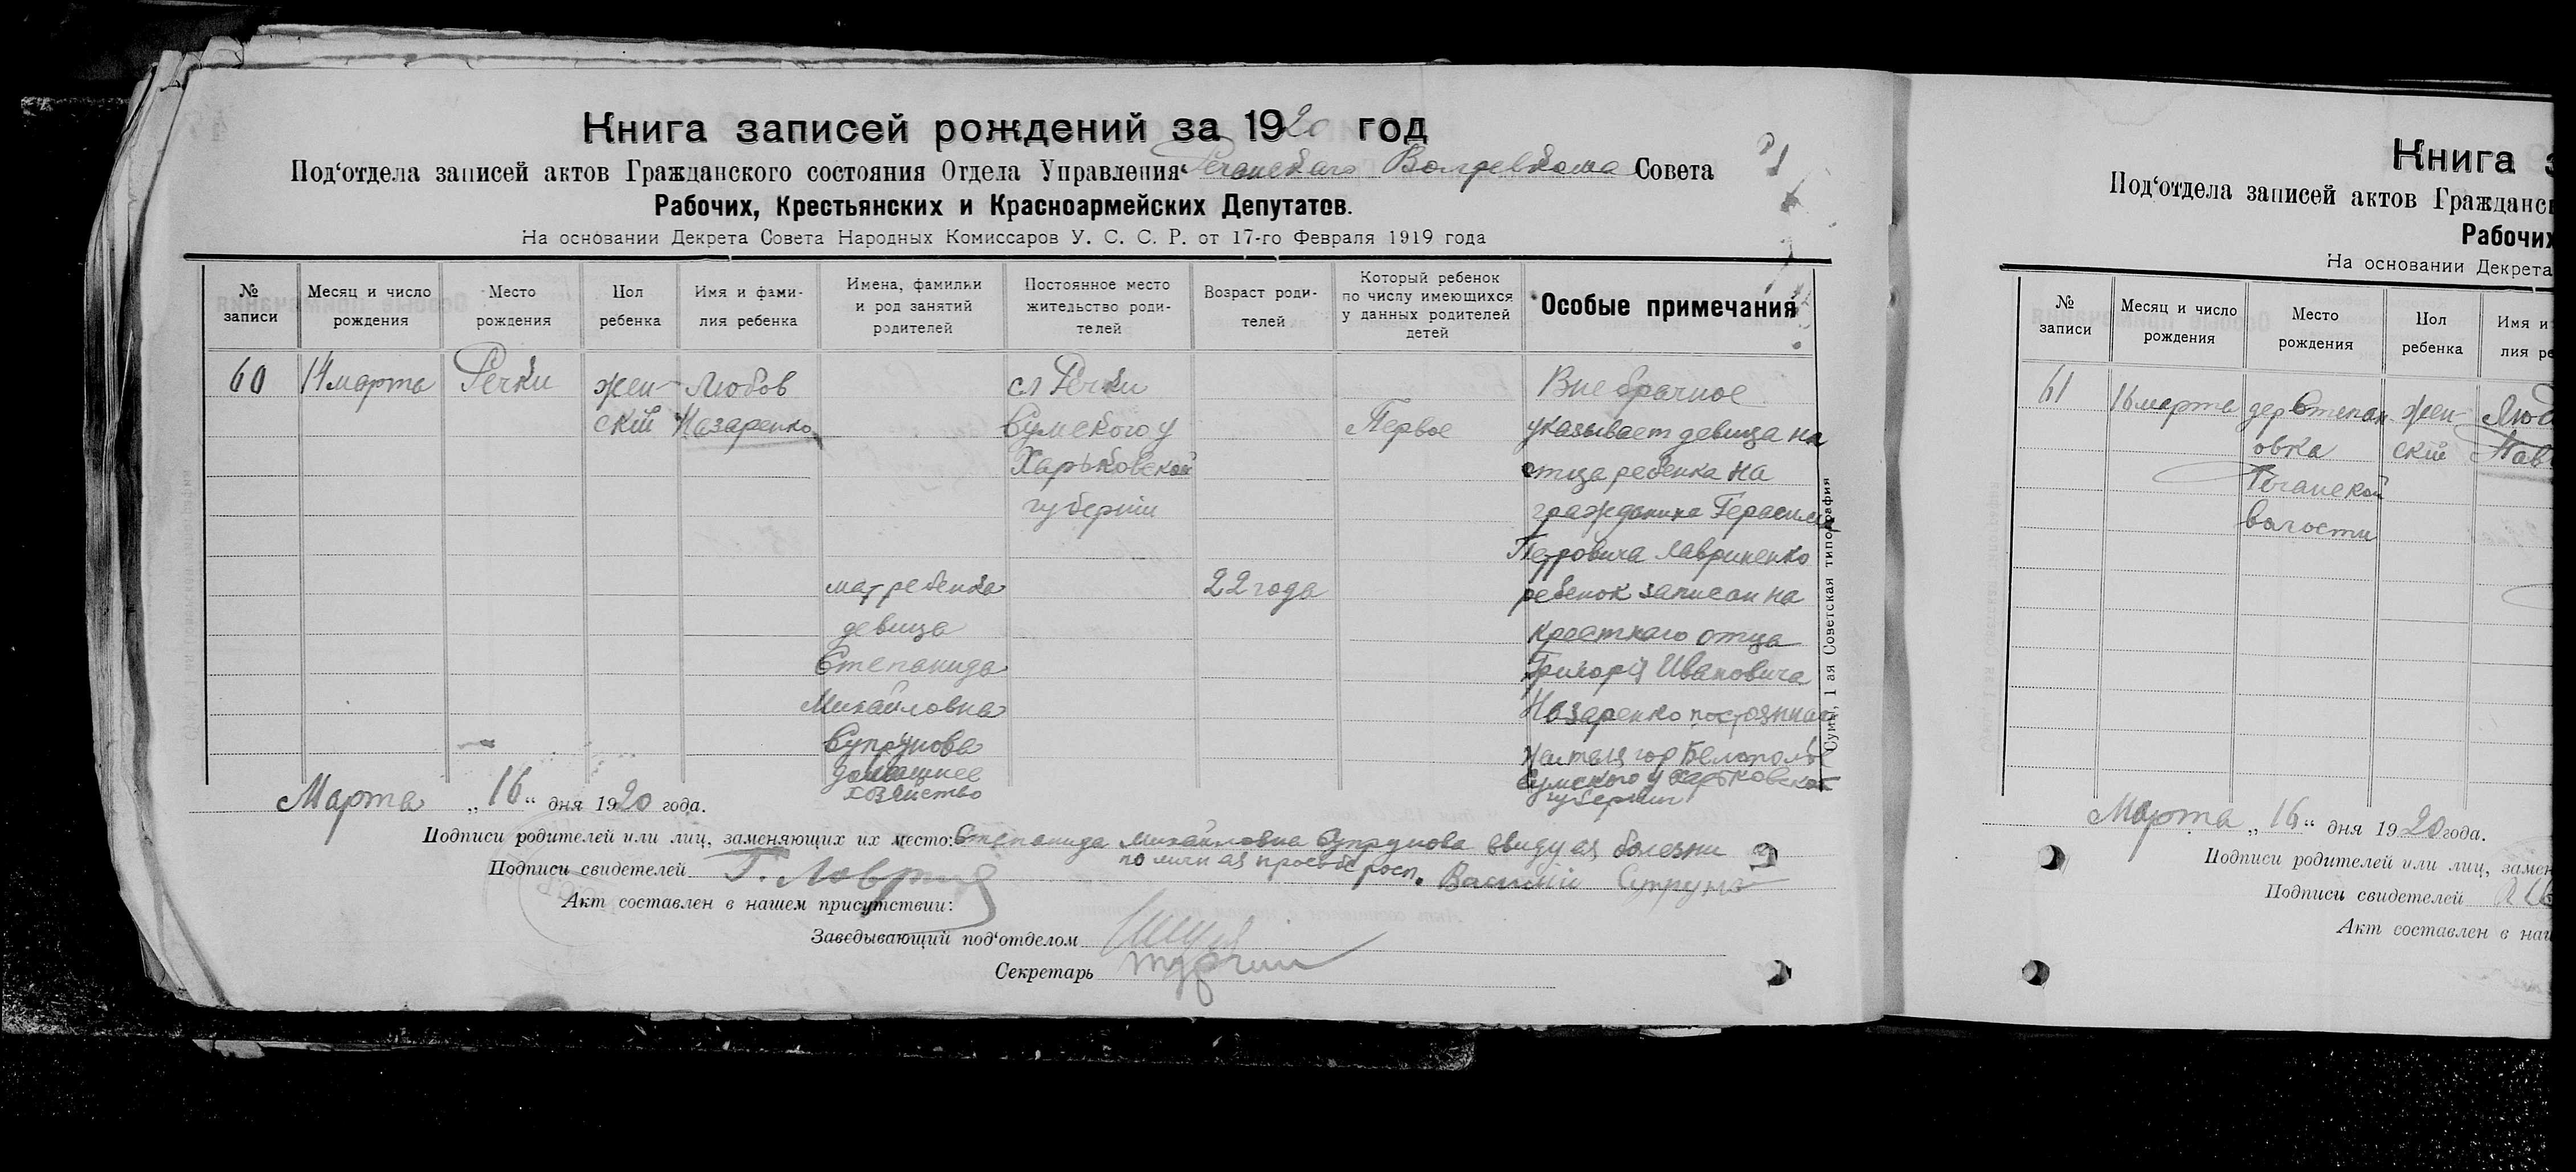 Книга записей рождений за 1920 год
Под‘отдела записей актов Гражданского состояния Отдела Управления Речанского Волревкома Совета
Рабочих, Крестьянских и Красноармейских Депутатов.
На основании Декрета Совета Народных Комиссаров У. С. С. Р. от 17-го Февраля 1919 года
№ записи
Месяц и число рождения
Место рождения
Пол ребенка
Имя и фами-
лия ребенка
Имена, фамилии
и род занятий
родителей
Постоянное место
жительство роди-
телей
Возраст роди-
телей
Который ребенок
по числу имеющихся
у данных родителей
детей
Особые примечания
60
14 марта
Речки
жен-
скій
Любов
Назаренко
мат ребенка
девица
Степанида
Михайловна
Супрунова
домашнее
хозяйство
сл Речки
Сумского у
Харьковской
губерніи
22 года
Первое
Вне брачное
указывает девица на
отца ребенка на
гражданина Герасима
Петровича Лавриненко
ребенок записан на
крестнаго отца
Григорія Ивановича
Назаренко постоянная
жителя гор Белополье
Сумского у Харьковской
губерніи
Сумы, 1 ая Советская типография
Марта „16“ дня 1920 года.
Подписи родителей или лиц, заменяющих их место: Степанида Михайловна Супрунова ввиду ея болезни
по личн ая просьбе росп. Василій Супруно
Подписи свидетелей Г. Лаврин
Акт составлен в нашем присутствии:
Заведывающий под‘отделом
Секретарь
Книга
Под‘отдела записей актов Гражданс
Рабочих
На основании Декрета
№
записи
Месяц и число
рождения
Место
рождения
Пол
ребенка
Имя и
лия ре
61
16 марта
дер Степан
овка
Речанской
волости
жен-
скій
Люб
Марта „16“ дня 1920 года.
Подписи родителей или лиц, замен
Подписи свидетелей
Акт составлен в наш